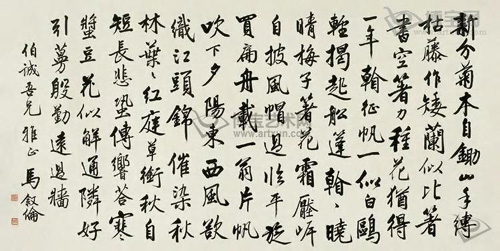 新分菊本自鋤山手縛
枯藤作矮蘭似比著
書空箸力種花猶得
一年翰征帆一似白鷗
輕揭起船蓬
曉
晴梅子著花霜
自披風帽過臨平旋
買扁舟載一翁片帆
吹下夕陽東西風欲
織江頭錦催染秋
林葉葉紅庭草銜秋自
短長悲蛩傳響答寒
螿豆花似解通隣好
引蔓殷勤遠過牆
伯誠吾兄雅正
馬叙倫